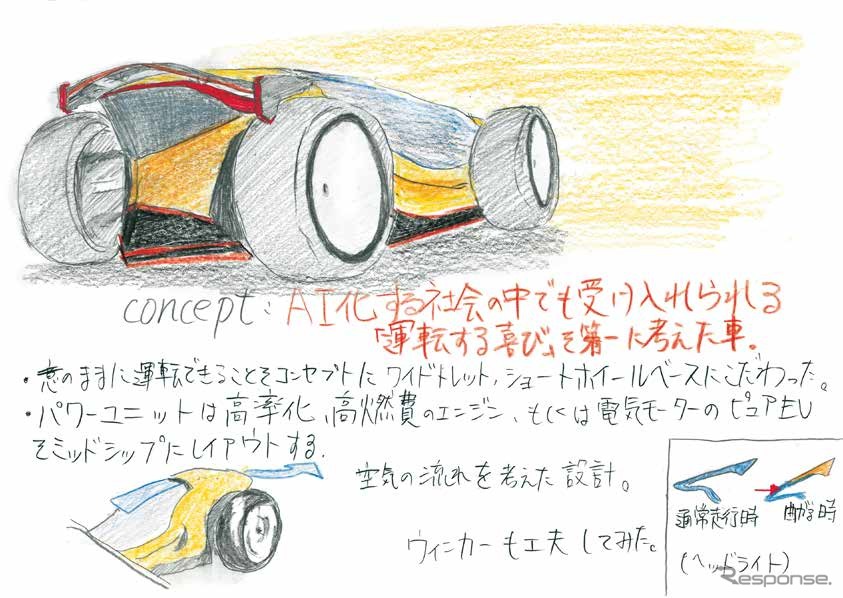 concept: AI化する社会の中でも受け入れられる
「運転する喜び」を第一に考えた車。
・意のままに運転できることをコンセプトにワイドトレット,ショートホイールベースにこだわった。
・パワーユニットは高率化、高燃費のエンジン、もしくは電気モーターのピュアEV
をミッドシップにレイアウトする.
空気の流れを考えた設計。
ウィンカーも工夫してみた。
通常走行時
曲がる時
(ヘッドライト)
Response.